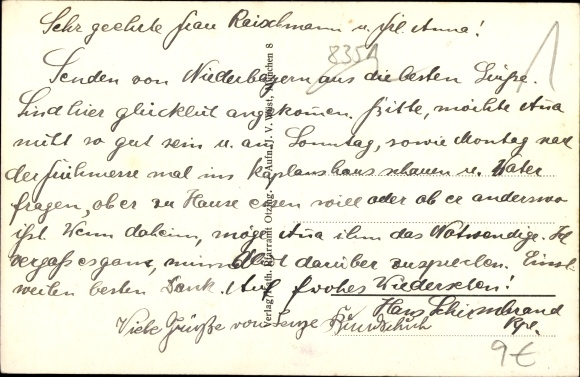 Sehr geehrte Frau Raischmann u. Frl. Anna!
8354
1
Senden von Niederbayern aus die besten Grüße.
Sind hier glücklich angekommen. Bitte, möchte Anna
nicht so gut sein u. am Sonntag, sowie Montag nach
der Frühmesse mal ins Kaplanshaus schauen u. Vater
fragen, ob er zu Hause essen will oder ob er anderswo
ißt. Wenn daheim, möge Anna ihm das Notwendige. Ich
vergaß es ganz, mit darüber zu sprechen. Einst-
weilen besten Dank. Auf frohes Wiedersehen!
Hans
Viele Grüße von
9 €
Verlag: Kath. Pfarramt (Aufn. J. V. München 8